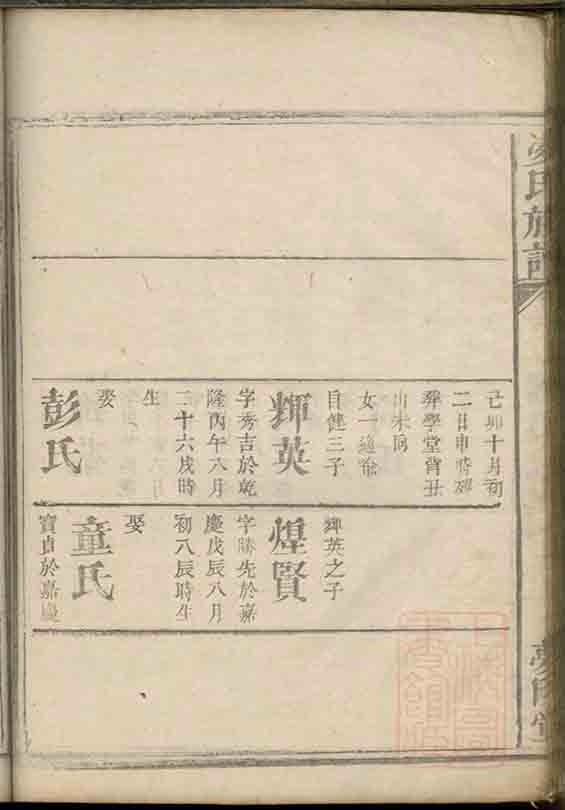 氏族譜
己卯十月初
二日申時歿
葬學堂背丑
山未向
女一適徐
自健三子
輝英
字秀吉於乾
隆丙午六月
二十六戌時
生
娶
彭氏
輝英之子
煌賢
字勝先於嘉
慶戊辰八月
初八辰時生
娶
童氏
寶貞於嘉慶